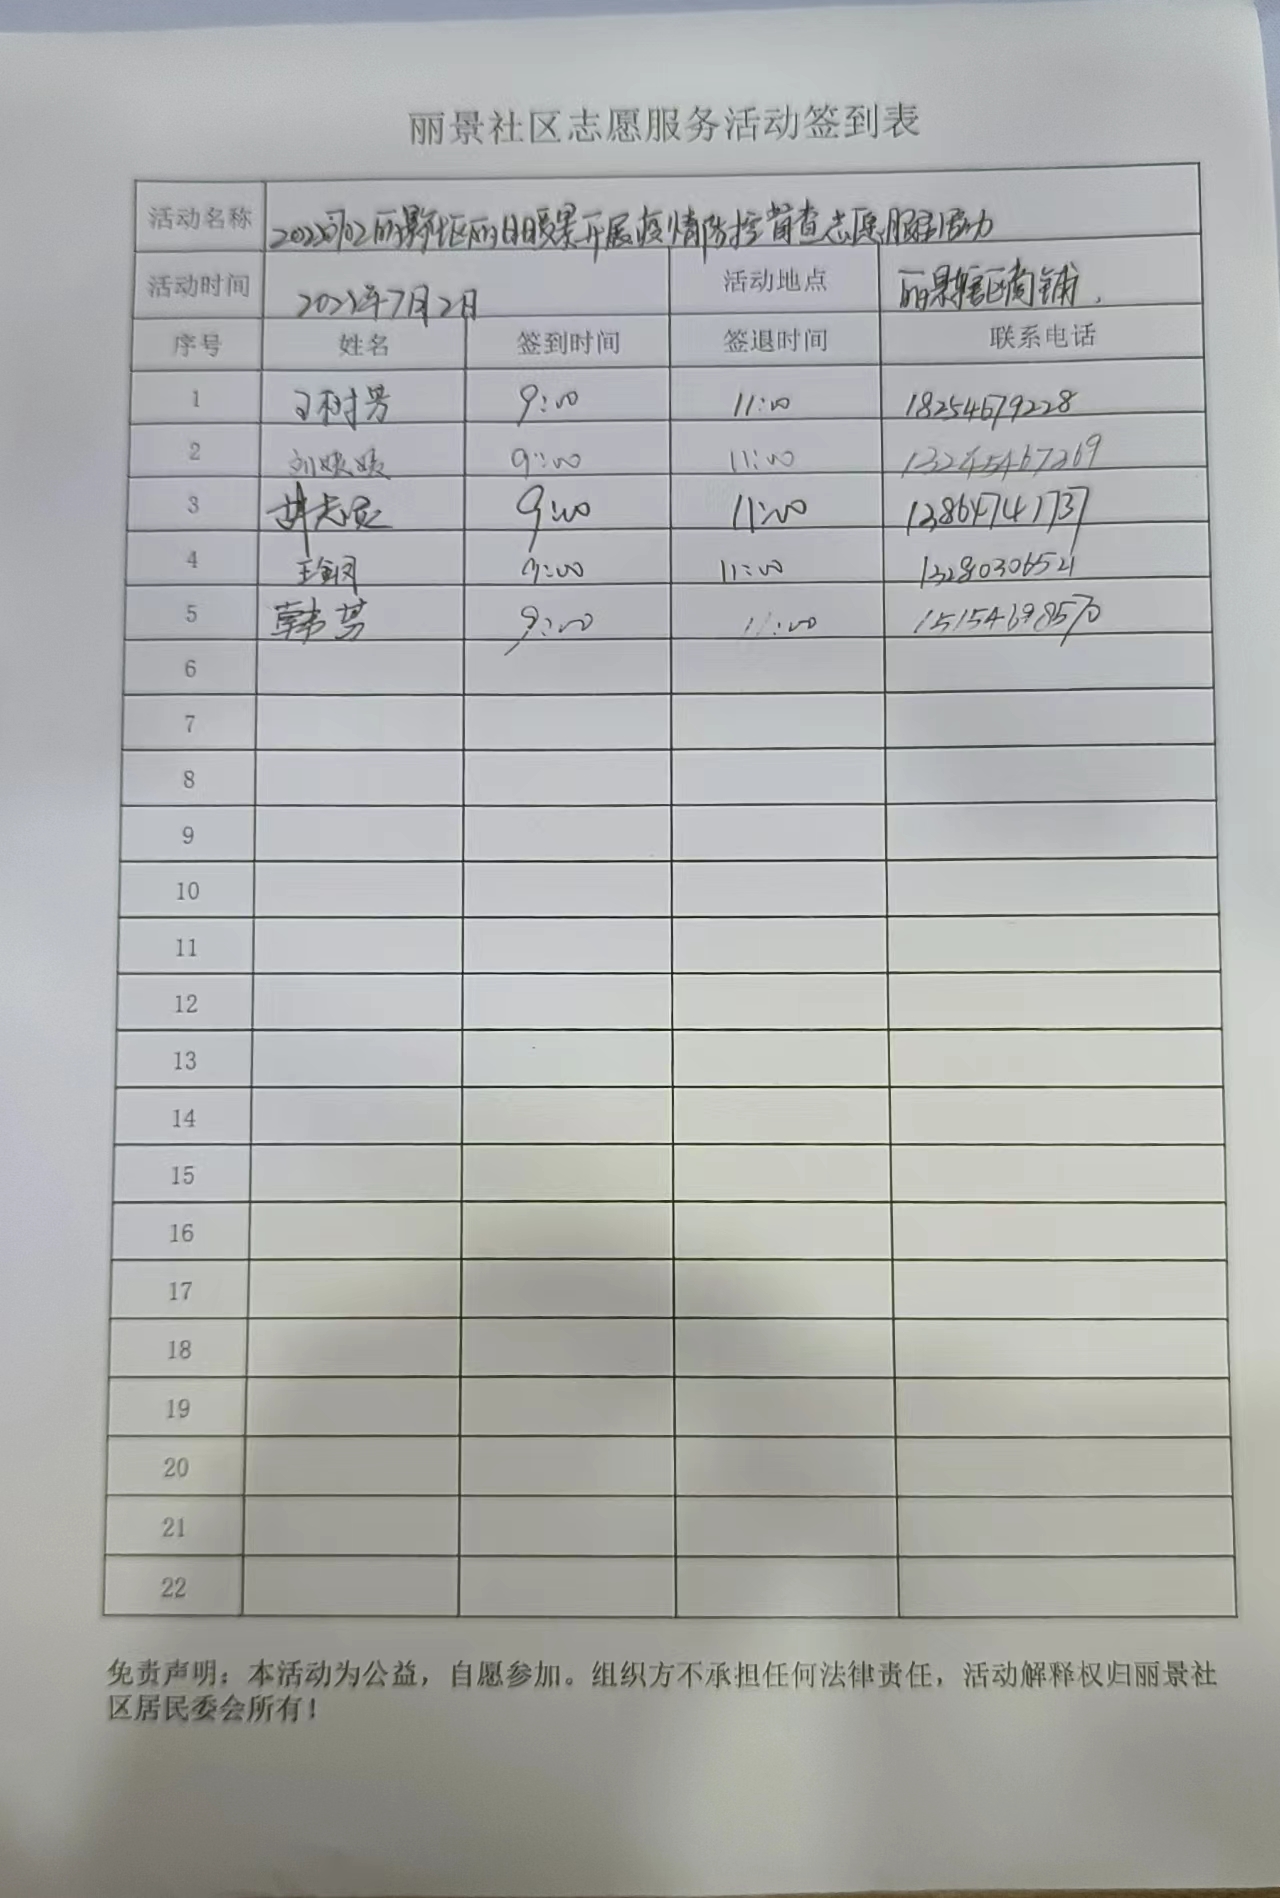 丽景社区志愿服务活动签到表
活动名称 20220702丽景社区丽日暖景开展疫情防控督查志愿服务活动
活动时间 2022年7月2日 活动地点 丽景辖区商铺.
序号 姓名 签到时间 签退时间 联系电话
1 王树男 9:00 11:00 18254679228
2 刘媛媛 9:00 11:00 13245467269
3 胡志 9:00 11:00 13864741737
4 王钢 9:00 11:00 13280306521
5 韩芳 9:00 11:00 15154698570
6
7
8
9
10
11
12
13
14
15
16
17
18
19
20
21
22
免责声明：本活动为公益，自愿参加。组织方不承担任何法律责任，活动解释权归丽景社
区居民委会所有！